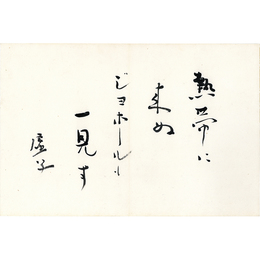 熱帯に
来ぬ
ジョホールー
一見す
虚子